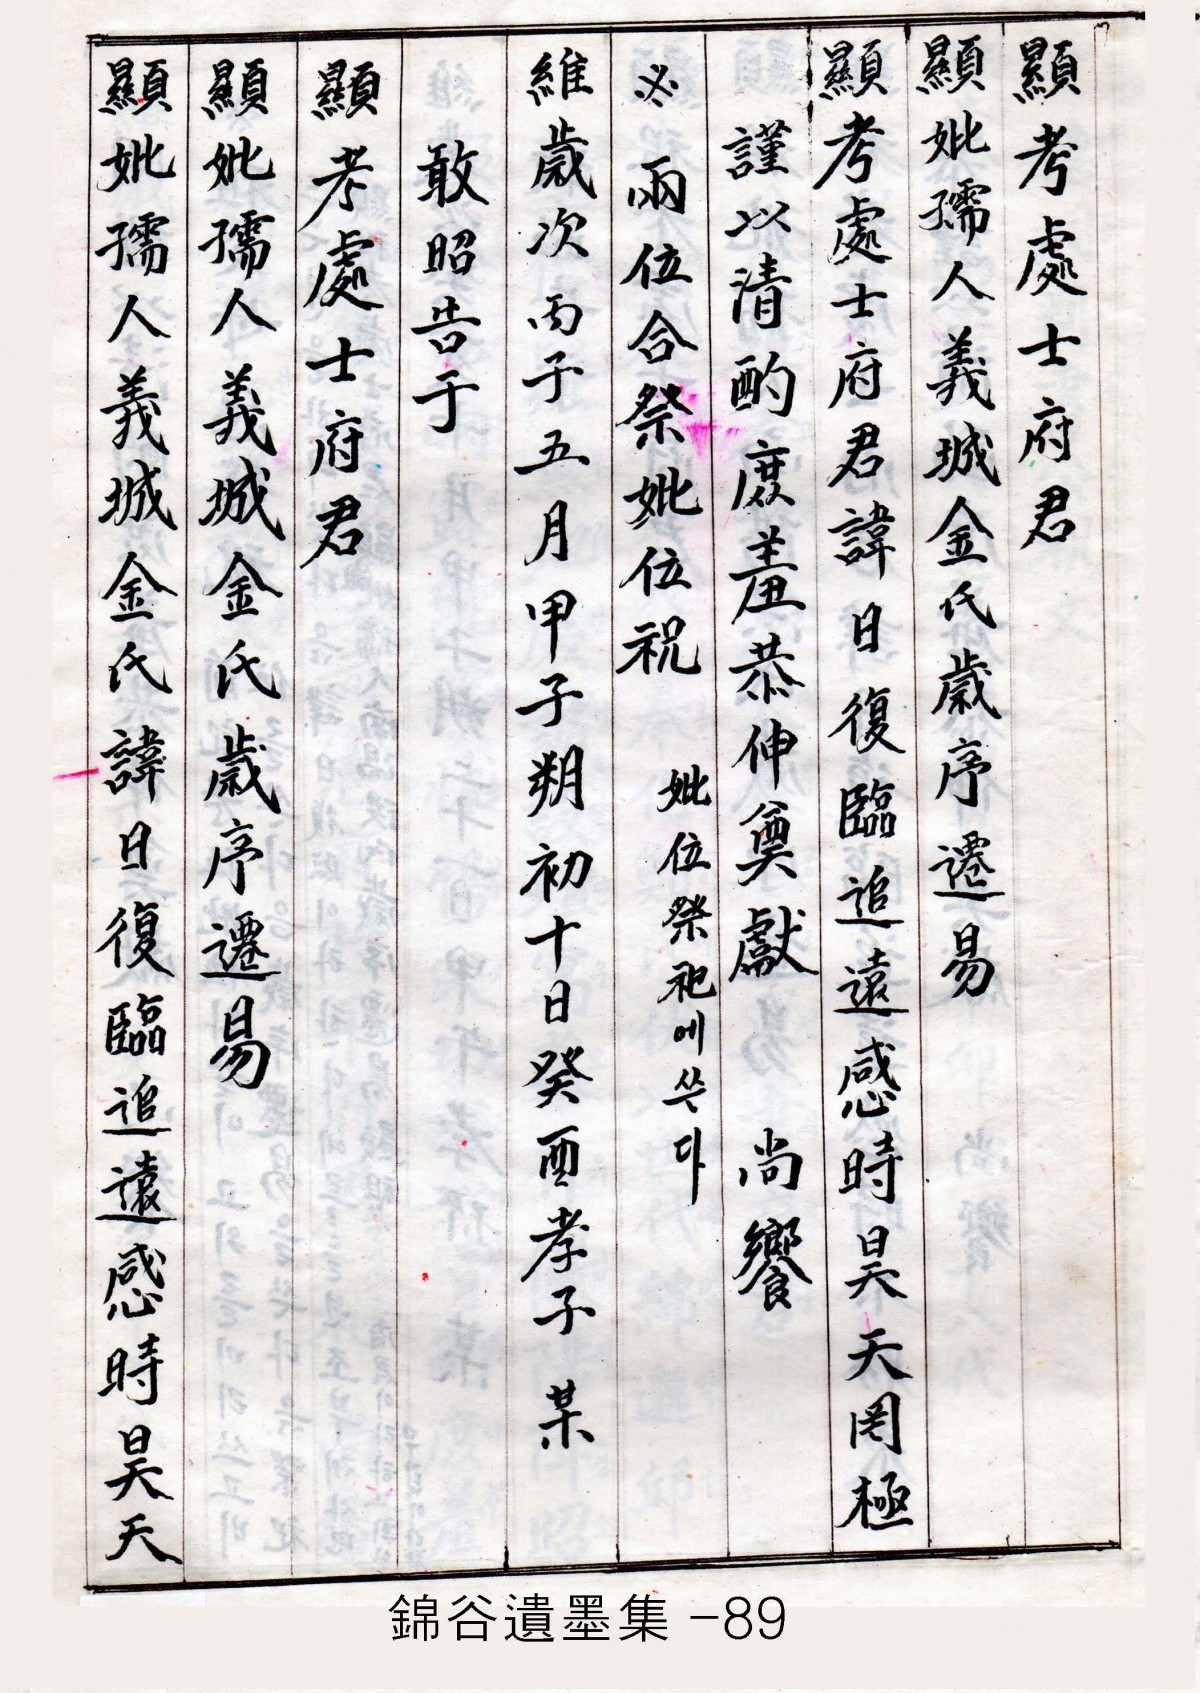 顯考處士府君
顯妣孺人義城金氏歲序遷易
顯考處士府君諱日復臨追遠感時昊天罔極
謹以清酌庶羞恭伸奠獻 尚饗
※ 兩位合祭妣位祝 妣位祭祀에쓰다
維歲次丙子五月甲子朔初十日癸酉孝子 某
敢昭告于
顯考處士府君
顯妣孺人義城金氏歲序遷易
顯妣孺人義城金氏諱日復臨追遠感時昊天
錦谷遺墨集 -89